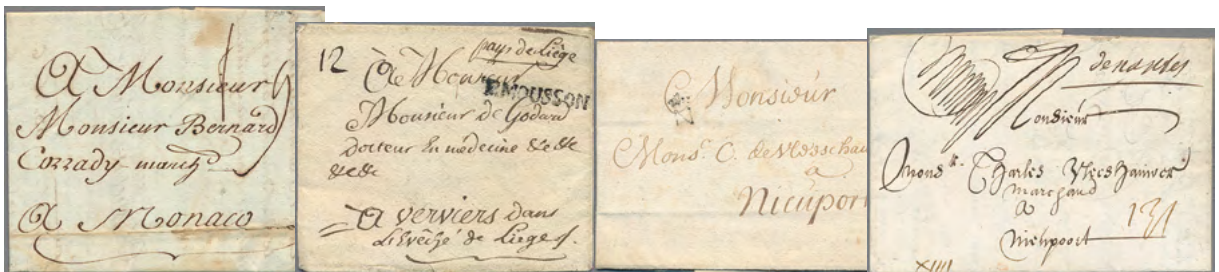 A Monsieur
Monsieur Bernard
Corrady march
A Monaco
12
pays de Liège
A Monsieur
P.MOUSSON
Monsieur de Godard
Docteur En medecine &c &c
&c &c
A verviers dans
L'Evêché de Lieges.
Monsieur
Mons. C. de
a
Nieuport
de nantes
Monsieur
Charles
marchand
A
nieupoort
XIIII